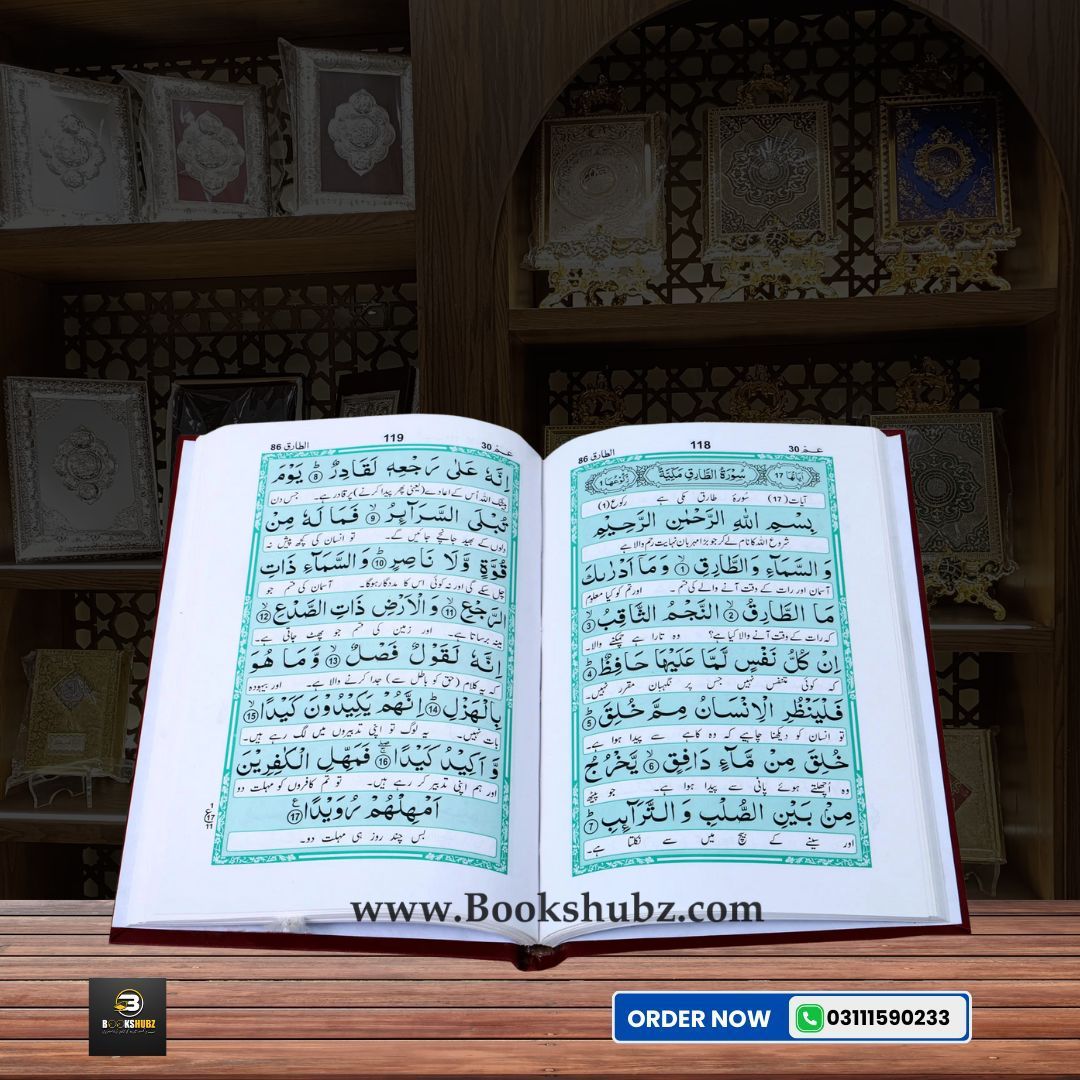 118
عـم 30
الطارق 86
اٰیاتها 17
سُوۡرَةُ الطَّارِقِ مَكِّيَّةٌ
رکوعها 1
آیات (17) سورۃ طارق مکی ہے رکوع (1)
بِسۡمِ اللهِ الرَّحۡمٰنِ الرَّحِيۡمِ
شروع اللہ کا نام لے کر جو بڑا مہربان نہایت رحم والا ہے
وَ السَّمَآءِ وَالطَّارِقِ ۙ1 وَ مَاۤ اَدۡرٰٮكَ
آسمان اور رات کے وقت آنے والے کی قسم۔ اور تم کو کیا معلوم
مَا الطَّارِقُ ۙ2 النَّجۡمُ الثَّاقِبُ ۙ3
کہ رات کے وقت آنے والا کیا ہے؟ وہ تارا ہے چمکنے والا۔
اِنۡ كُلُّ نَفۡسٍ لَّمَّا عَلَيۡهَا حَافِظٌ ؕ4
کہ کوئی متنفس نہیں جس پر نگہبان مقرر نہیں۔
فَلۡيَنۡظُرِ الۡاِنۡسَانُ مِمَّ خُلِقَ ؕ5
تو انسان کو دیکھنا چاہیے کہ وہ کاہے سے پیدا ہوا ہے۔
خُلِقَ مِنۡ مَّآءٍ دَافِقٍ ۙ6 يَّخۡرُجُ
وہ اُچھلتے ہوئے پانی سے پیدا ہوا ہے۔ جو پیٹھ
مِنۡۢ بَيۡنِ الصُّلۡبِ وَ التَّرَآٮِٕبِ ؕ7
اور سینے کے بیچ میں سے نکلتا ہے۔
119
عـم 30
الطارق 86
اِنَّهٗ عَلٰى رَجۡعِهٖ لَقَادِرٌ ؕ8 يَوۡمَ
بیشک اللہ اُس کے اعادے (یعنی پھر پیدا کرنے) پر قادر ہے۔ جس دن
تُبۡلَى السَّرَآٮِٕرُ ۙ9 فَمَا لَهٗ مِنۡ
دلوں کے بھید جانچے جائیں گے۔ تو انسان کی کچھ پیش نہ
قُوَّةٍ وَّلَا نَاصِرٍ ؕ10 وَ السَّمَآءِ ذَاتِ
چل سکے گی اور نہ کوئی اس کا مددگار ہوگا۔ آسمان کی قسم جو
الرَّجۡعِ ۙ11 وَ الۡاَرۡضِ ذَاتِ الصَّدۡعِ ۙ12
مینہ برساتا ہے۔ اور زمین کی قسم جو پھٹ جاتی ہے۔
اِنَّهٗ لَقَوۡلٌ فَصۡلٌ ۙ13 وَّ مَا هُوَ
کہ یہ کلام (حق کو باطل سے) جدا کرنے والا ہے۔ اور بیہودہ
بِالۡهَزۡلِ ؕ14 اِنَّهُمۡ يَكِيۡدُوۡنَ كَيۡدًا ۙ15
بات نہیں۔ یہ لوگ تو اپنی تدبیروں میں لگ رہے ہیں۔
وَّ اَكِيۡدُ كَيۡدًا ۚۖ16 فَمَهِّلِ الۡكٰفِرِيۡنَ
اور ہم اپنی تدبیر کر رہے ہیں۔ تو تم کافروں کو مہلت دو
اَمۡهِلۡهُمۡ رُوَيۡدًا ؑ17
بس چند روز ہی مہلت دو۔
1
ع
17
11
www.Bookshubz.com
B
BOOKSHUBZ
ORDER NOW
03111590233